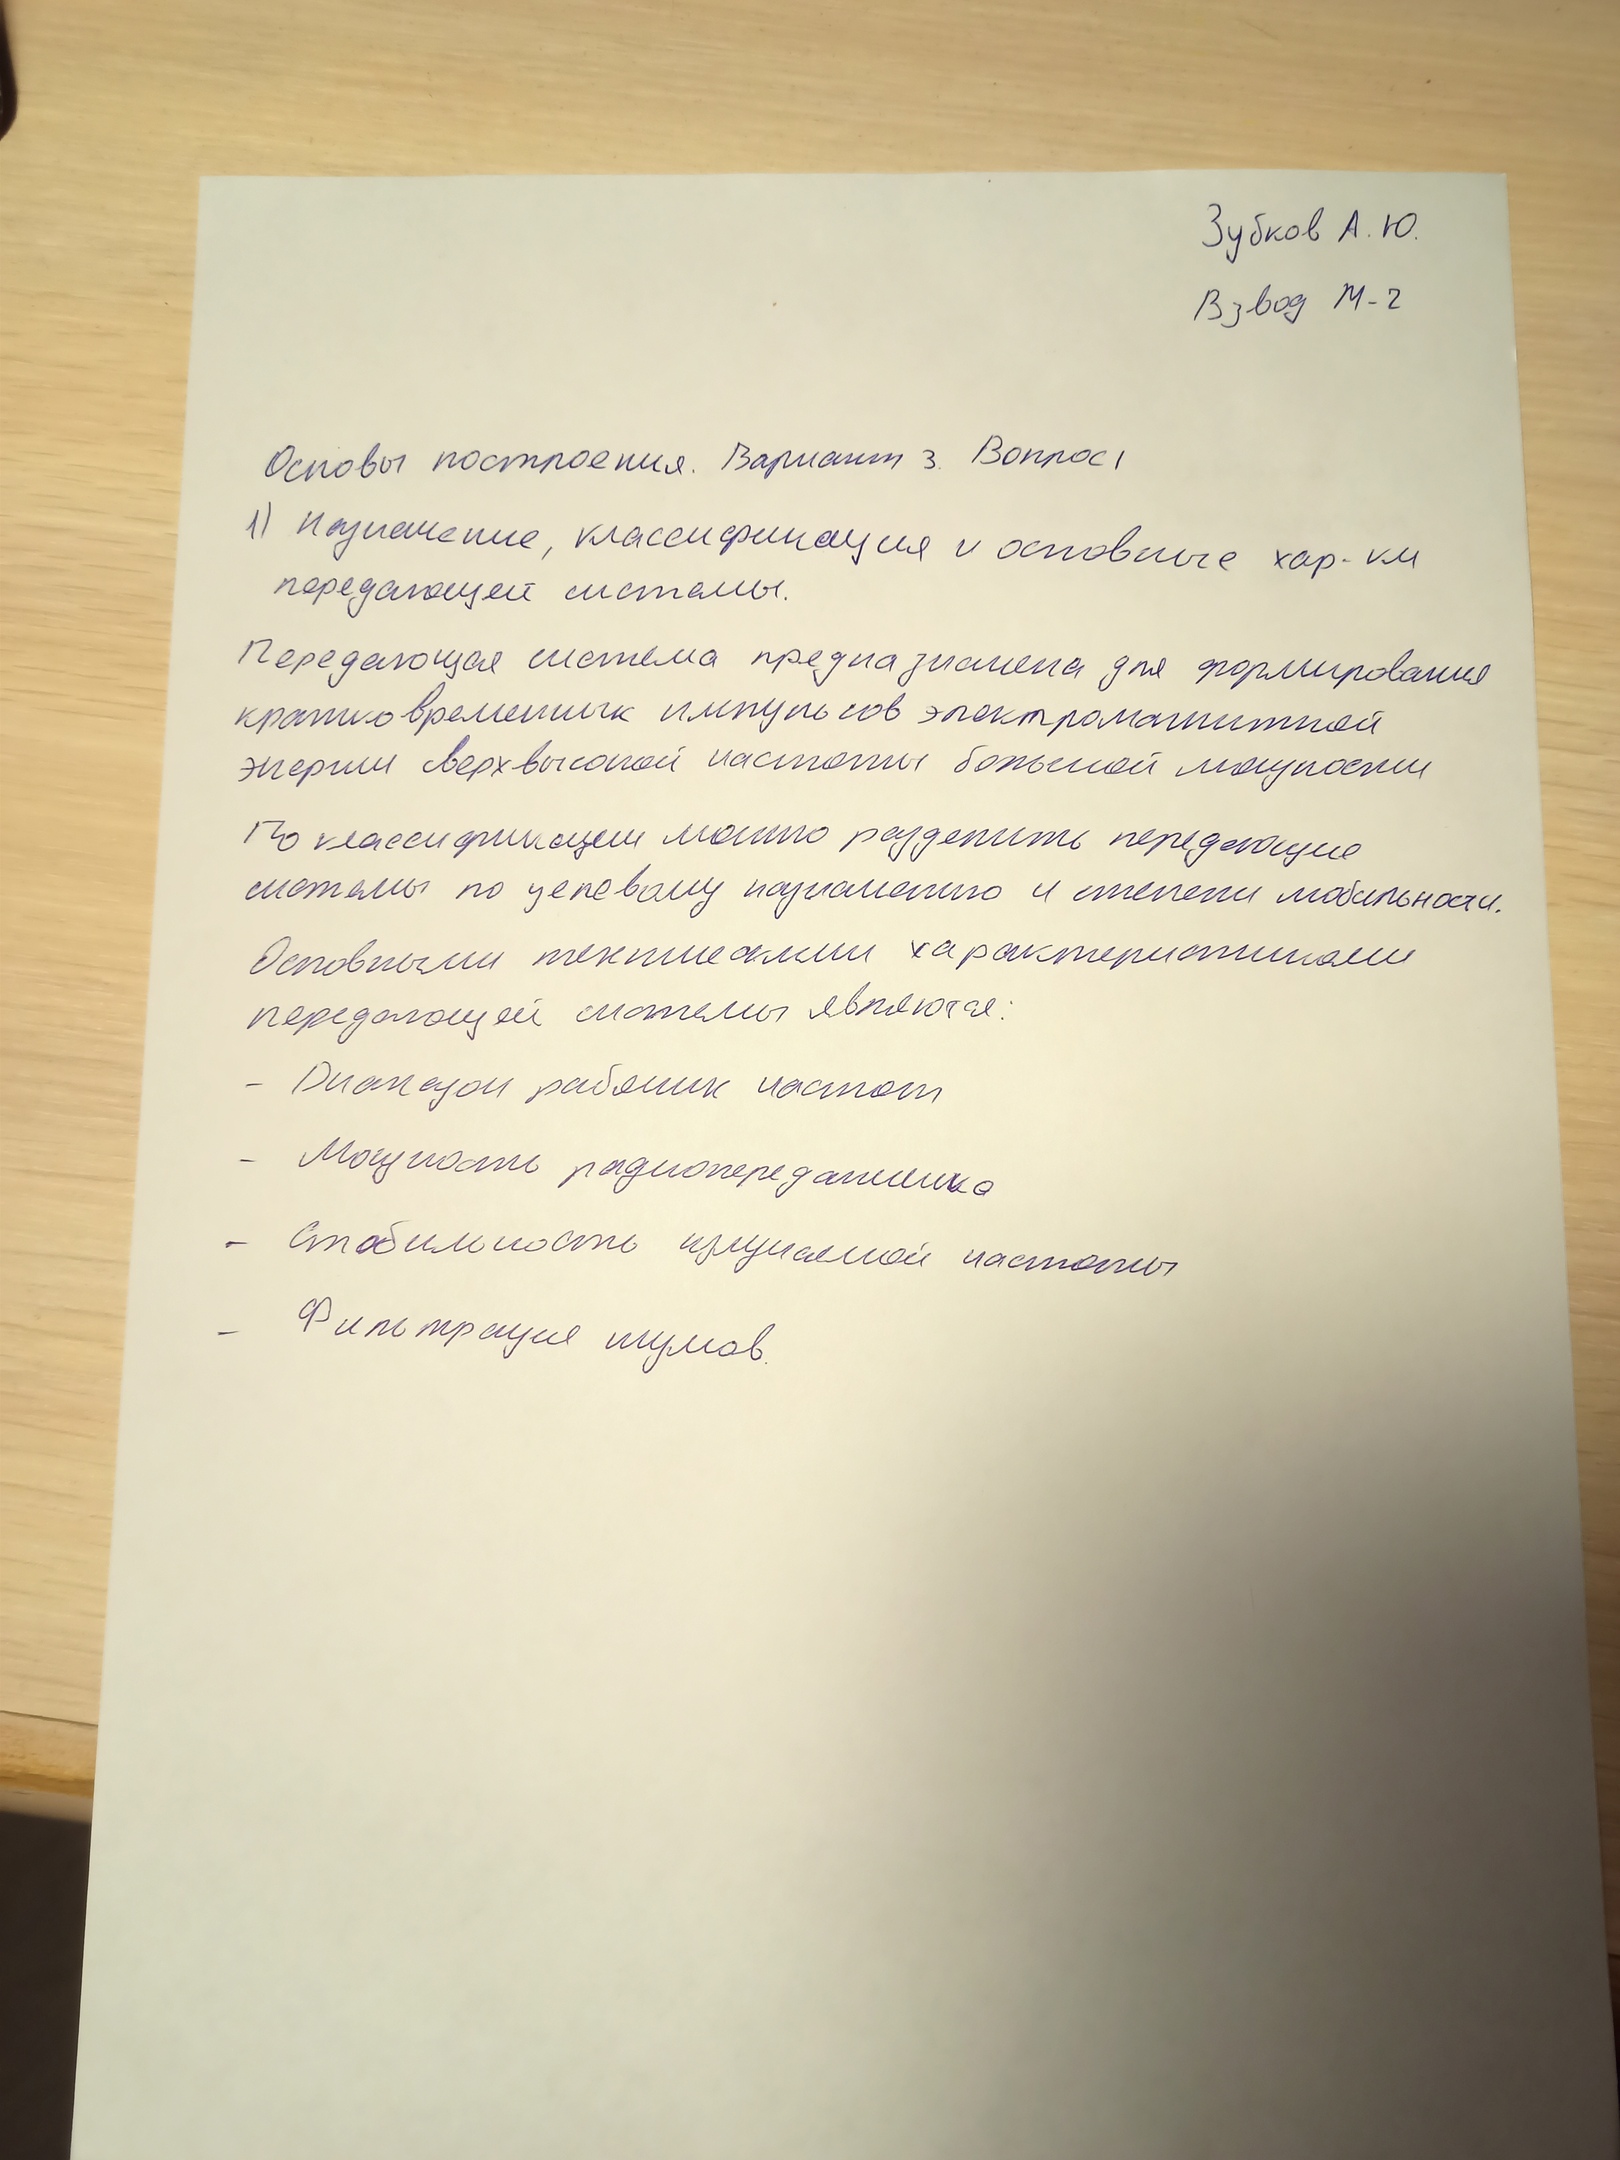 Зубков А.Ю.
Взвод М-2
Основы построения. Вариант 3. Вопрос 1
1) Назначение, классификация и основные хар-ки
передающей системы.
Передающая система предназначена для формирования
кратковременных импульсов электромагнитной
энергии сверхвысокой частоты большой мощности
По классификации можно разделить передающие
системы по целевому назначению и степени мобильности.
Основными тактическими характеристиками
передающей системы являются:
- Диапазон рабочих частот
- Мощность радиопередатчика
- Стабильность излучаемой частоты
- Фильтрация шумов.